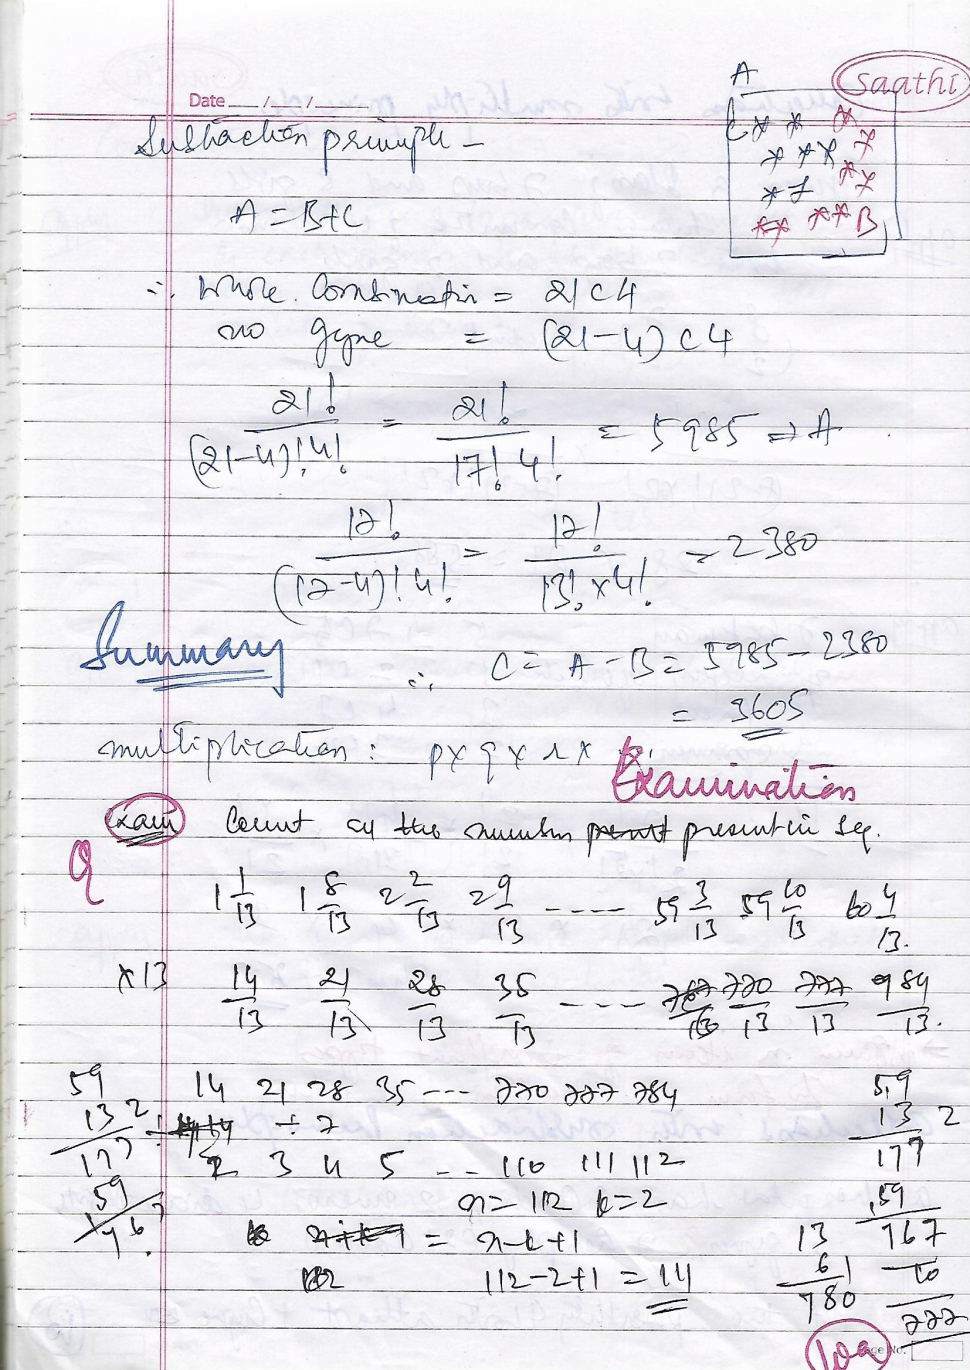 A
Saathi
Date __/__/__
Subtraction principle -
A = B+C
C
B
∴ whole. Combination = 21C4
no = (21-4) C4
21! / (21-4)! 4! = 21! / 17! 4! = 5985 => A
17! / (17-4)! 4! = 17! / 13! x 4! = 2380
Summary
∴ C = A - B = 5985 - 2380
= 3605
multiplication: p x q x r x
Examination
Exam Count the number present in seq.
Q
1 1/13 1 8/13 2 2/13 2 9/13 ----- 59 3/13 59 10/13 60 4/13.
x13 14/13 21/13 28/13 35/13 ----- 770/13 777/13 984/13.
14 21 28 35 --- 770 777 784
÷ 7
2 3 4 5 -- 110 111 112
n = 112 k = 2
= n-k+1
112-2+1 = 111
59
13 2
177
59
59
13 2
177
59
767
10
777
13
61
780
Page No.